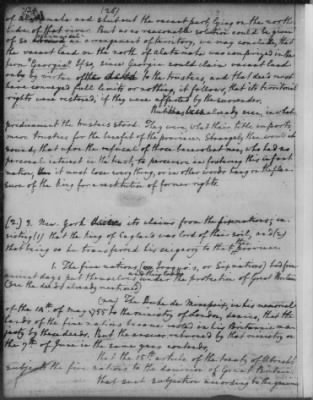 (26)
of Alatamaha and shut out the vacant party lying on the north
side of that river. But as no reasonable solution could be given
of so an arrangement of territory, we may conclude, that
the vacant land on the north of Alatamaha was comprized in the
term "Georgia". If so, since Georgia could claim vacant land
only by virtue of the deed to the trustees, and that deed must
have conveyed full limits or nothing, it follows, that its territorial
rights were restored, if they were affected by the surrender.
But already seen, in what
predicament the trustees stood. They were, what their title imports,
mere trustees for the benefit of the province. Strange is the
, that upon the refusal of these benevolent men, who had no
personal interest in the trust, to persevere in fostering this infant
nation, it must lose every thing, or in other words hang on the plea-
sure of the king for a restitution of former rights.
(2.) 2. New York its claims from the five nations; in-
sisting (1) that the king of England was lord of their soil, and (2)
that being so he transferred his seigniory to that province.
1. The five nations (or Iroquois, or
days put themselves under the protection of Great Britain
(See the deeds already mentioned)
The Duke de Mirepoix, in his memorial
of the 14th. of May 1755 to the ministry of London, denies, that the
lands of the five nations became vested in his Britannic ma-
jesty by these deeds. And the answer returned by that ministry on
the 7th of June in the same year contends,
that the 15th article of the treaty of Utrecht
subjects the five nations to the dominion of Great Britain:
that such subjection according to the